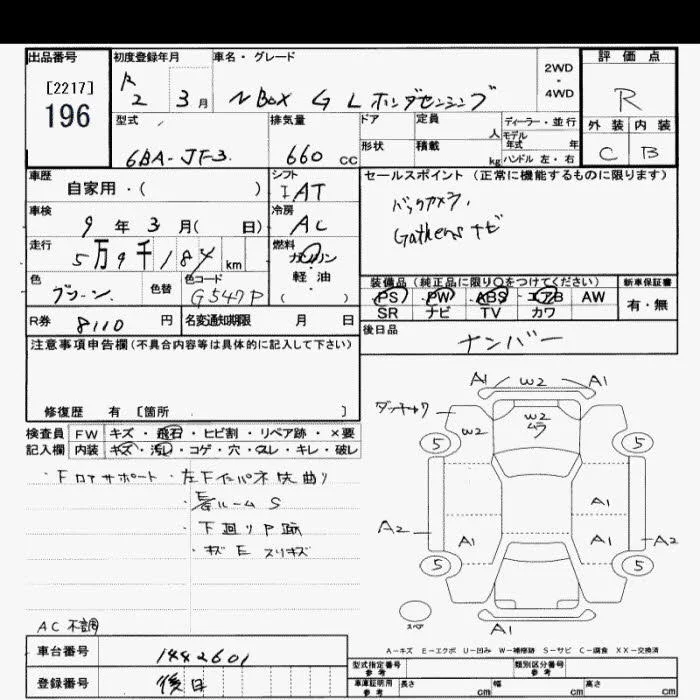 出品番号
[2217]
196
初度登録年月
R 2 3月
車名・グレード
N BOX G L ホンダセンシング
2WD
・
4WD
評価点
R
外装 内装
C B
型式
6BA-JF3
排気量
660 cc
ドア 定員 人
形状 積載 kg
ディーラー・並行
モデル年式 年
ハンドル 左・右
車歴
自家用・( )
シフト
IAT
車検
9年3月( 日)
冷房
AC
走行
5万9千187km
燃料
ガソリン
・
軽・油
( )
色
グリーン
色替
色コード
G547P
R券
8110円
名変通知期限 月 日
セールスポイント(正常に機能するものに限ります)
バックカメラ,
Gathersナビ
装備品(純正品に限り○をつけてください)
PS PW ABS エアB AW
SR ナビ TV カワ
新車保証書
有・無
後日品
ナンバー
注意事項申告欄(不具合内容等は具体的に記入して下さい)
修復歴 有 〔箇所 〕
検査員 FW キズ・飛石・ヒビ割・リペア跡・×要
記入欄 内装 キズ・汚れ・コゲ・穴・スレ・キレ・破レ
・Fロアサポート・左Fインパネ 曲り
ルーム S
・下廻りP跡
・キズ E スリキズ
AC 不調
A1 W2 A1
W2
W2
5 5
A1
A2 A1 A1 A2
5 5
スペア
A1
A-キズ E-エクボ U-凹み W-補修跡 S-サビ C-腐食 XX-交換済
車台番号
1442601
登録番号
後日
型式指定番号
参考
類別区分番号
参考
車庫証明用
参考
長さ cm 幅 cm 高さ cm